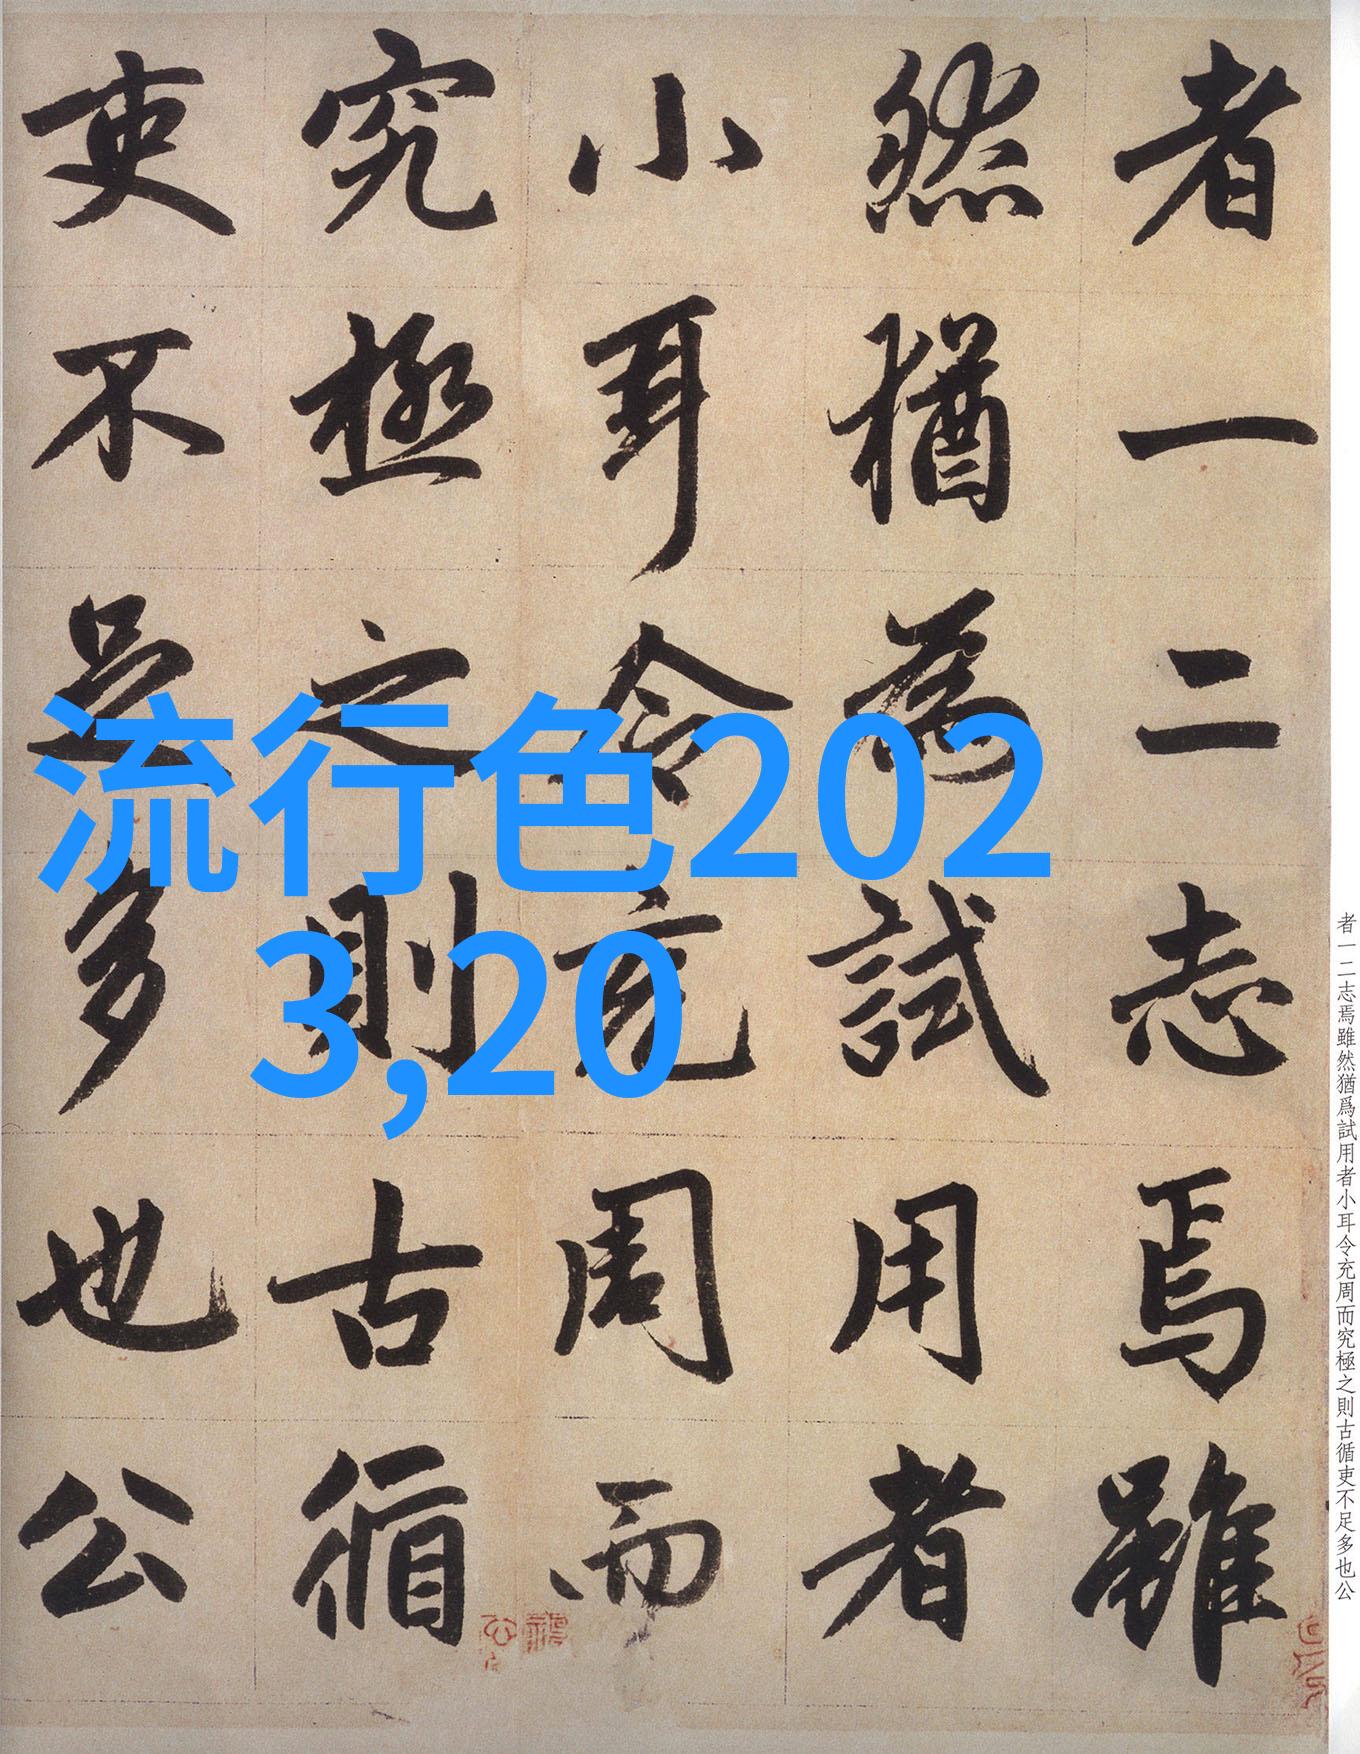 者一二志焉雖
然猶為試用者
小耳令充周而
究極之則古循
吏不足多也公
流行色202
3,20
者一二志焉雖然猶爲試用者小耳令充周而究極之則古循吏不足多也公